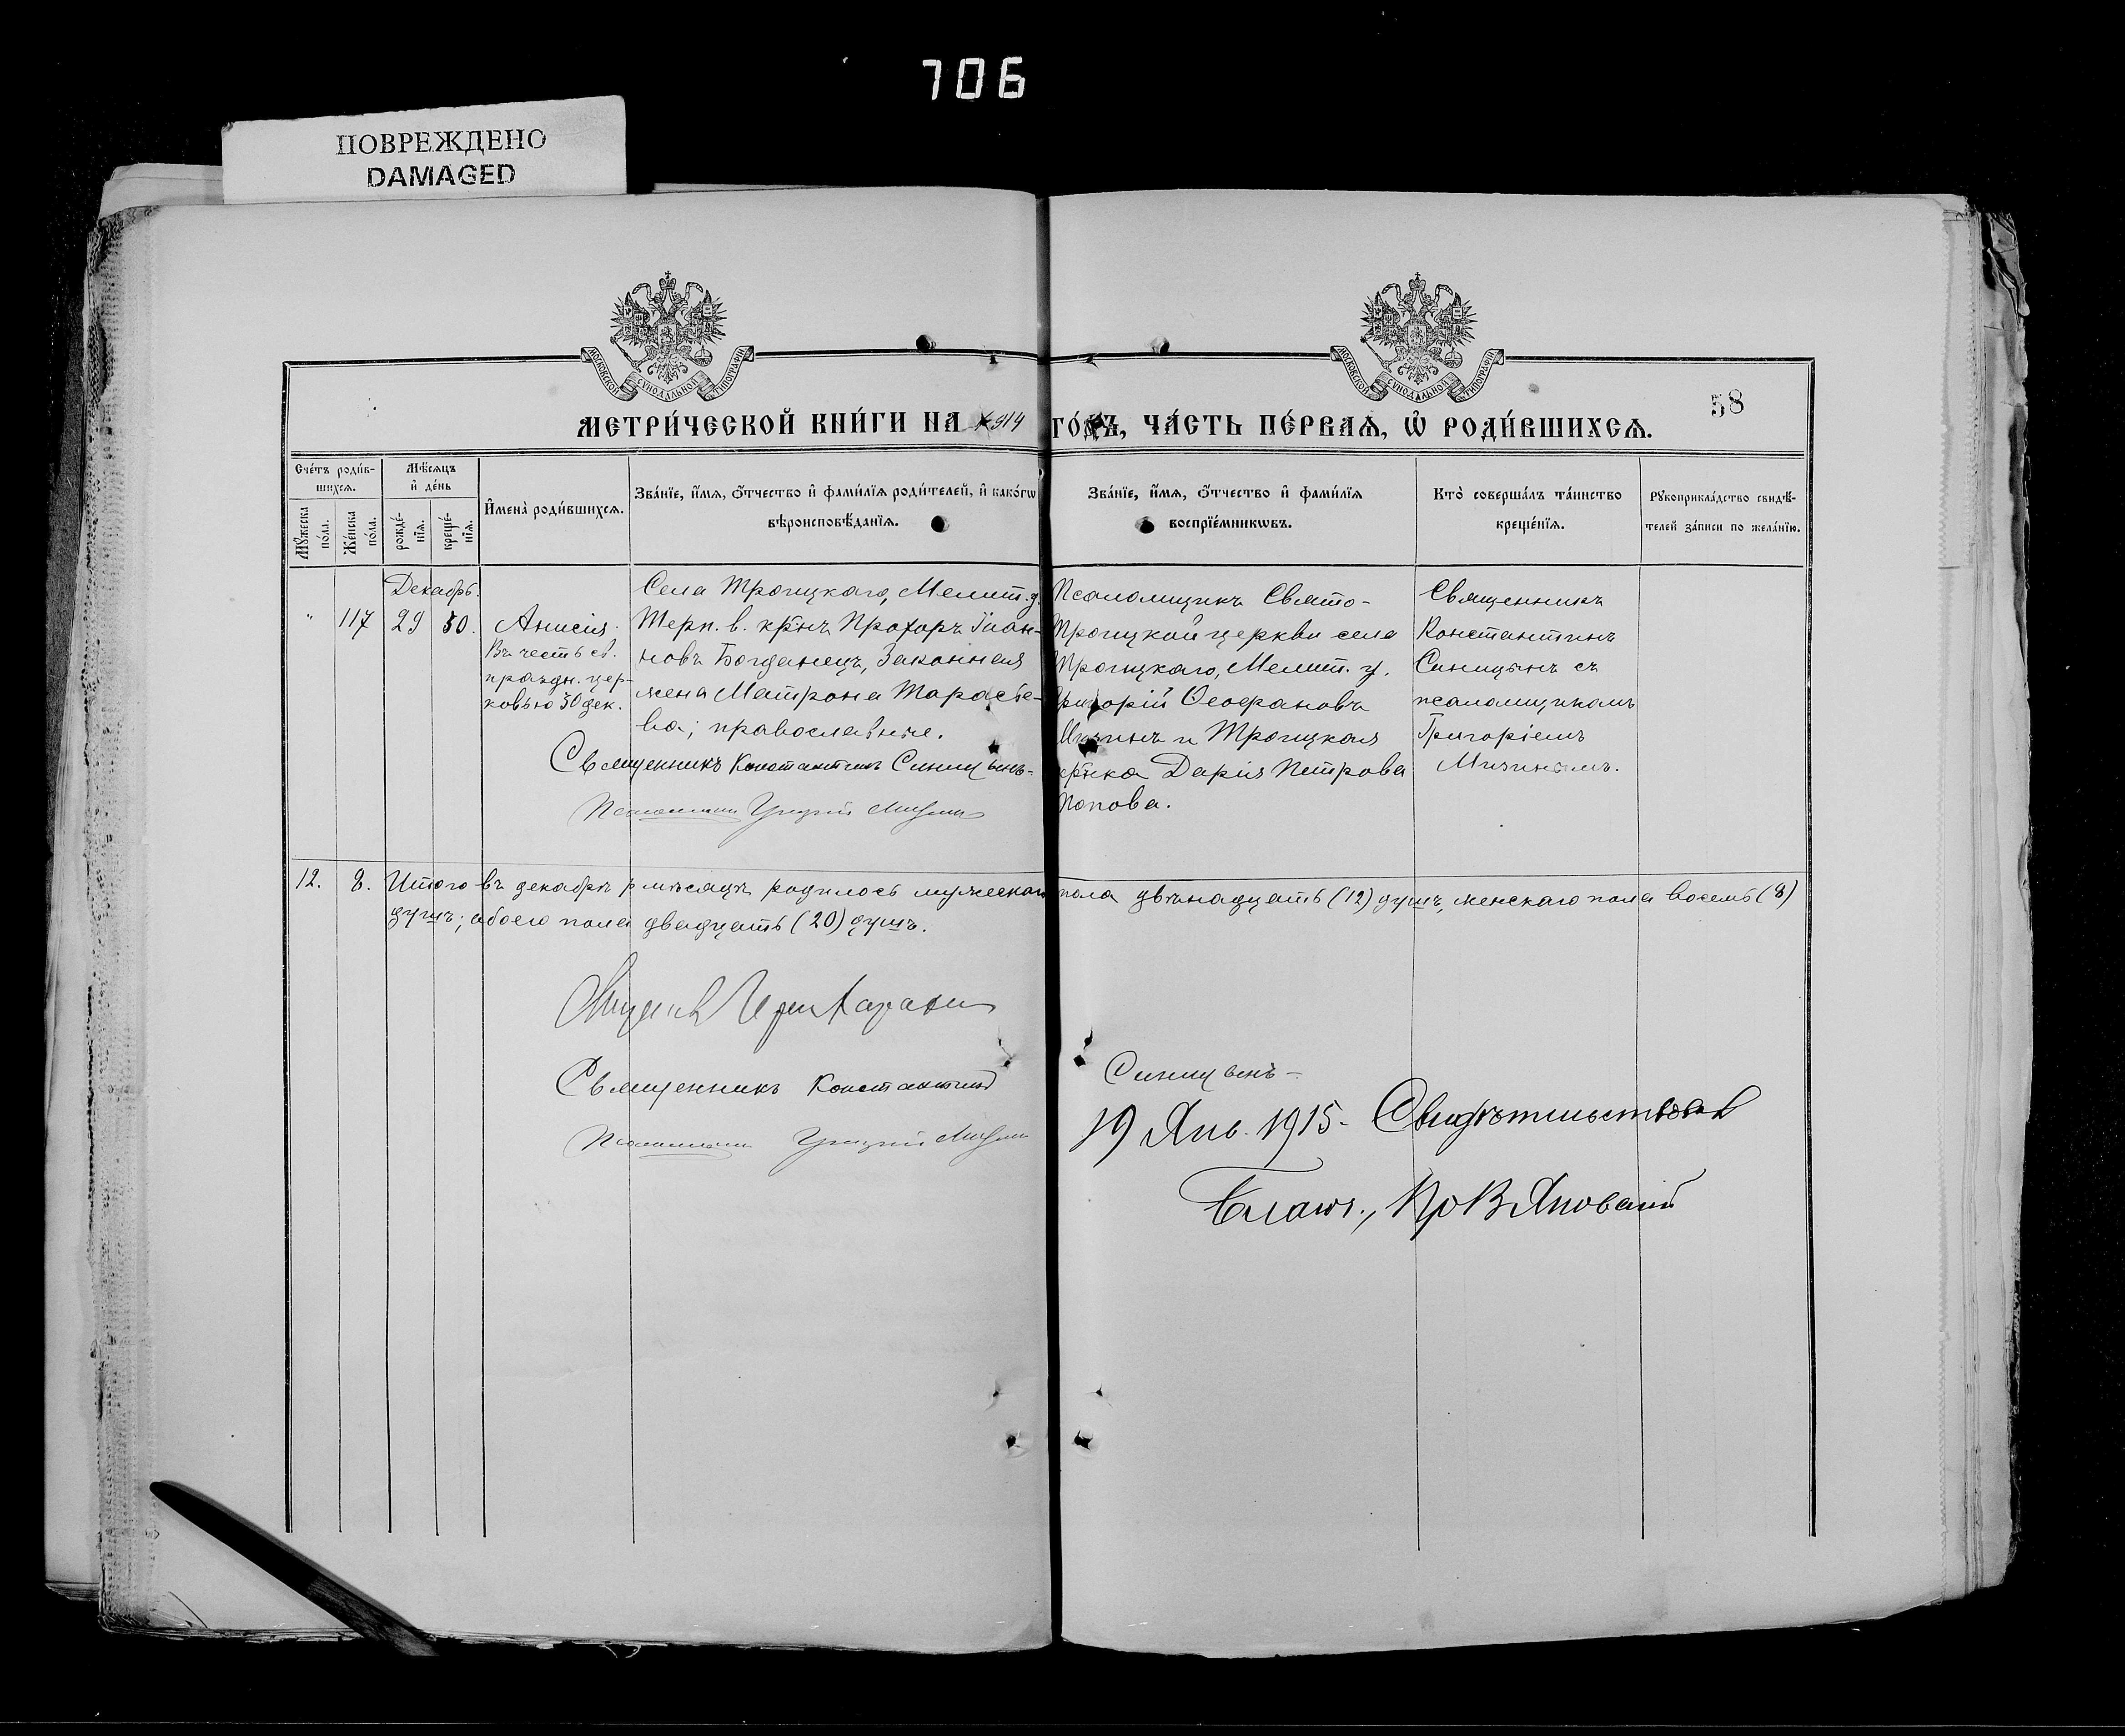 706
ПОВРЕЖДЕНО
DAMAGED
МОСКОВСКОЙ СѴНОДАЛЬНОЙ ТИПОГРАФІИ
МОСКОВСКОЙ СѴНОДАЛЬНОЙ ТИПОГРАФІИ
58
МЕТРИ́ЧЕСКОЙ КНИ́ГИ НА 1914 ГО́ДЪ, ЧА́СТЬ ПЕ́РВАѦ, Ѡ҆ РОДИ́ВШИХСѦ.
Сче́тъ роди́в-
шихсѧ.
Мѣ́сѧцъ
и҆ де́нь
Мꙋ́жеска
по́ла.
Же́нска
по́ла.
рожде́-
нїѧ.
креще́-
нїѧ.
И҆мена̀ роди́вшихсѧ.
Зва́нїе, и҆́мѧ, ѻ҆́тчество и҆ фами́лїѧ роди́телей, и҆ како́гѡ
вѣроисповѣ́данїѧ.
Зва́нїе, и҆́мѧ, ѻ҆́тчество и҆ фами́лїѧ
воспрїе́мникѡвъ.
Кто̀ соверша́лъ та́инство
креще́нїѧ.
Рꙋкоприкла́дство свидѣ́-
телей за́писи по жела́нїю.
Декабрь.
" 117 29 30.
Анисія.
Въ честь св.
праздн. цер-
ковью 30 дек.
Села Троицкаго, Мелит. у.
Терп. в. кр-нъ Прохоръ Іоан-
новъ Богданецъ, Законная
жена Матрона Тарасье-
ва; православные.
Священникъ Константинъ Синицынъ-
Псаломщикъ Григорій Мизинъ
Псаломщикъ Свято-
Троицкой церкви села
Троицкаго, Мелит. у.
Григорій Ѳеофановъ
Мизинъ и Троицкая
кр-нка Дарія Петрова
Попова.
Священникъ
Константинъ
Синицынъ съ
псаломщикомъ
Григоріемъ
Мизинымъ.
12. 8. Итого въ декабрѣ мѣсяцѣ родилось мужескаго пола двѣнадцать (12) душъ, женскаго пола восемь (8)
душъ; обоего пола двадцать (20) душъ.
Священникъ Константинъ Синицынъ-
Псаломщикъ Григорій Мизинъ
19 Янв. 1915. Свидѣтельствовалъ
Благоч.,